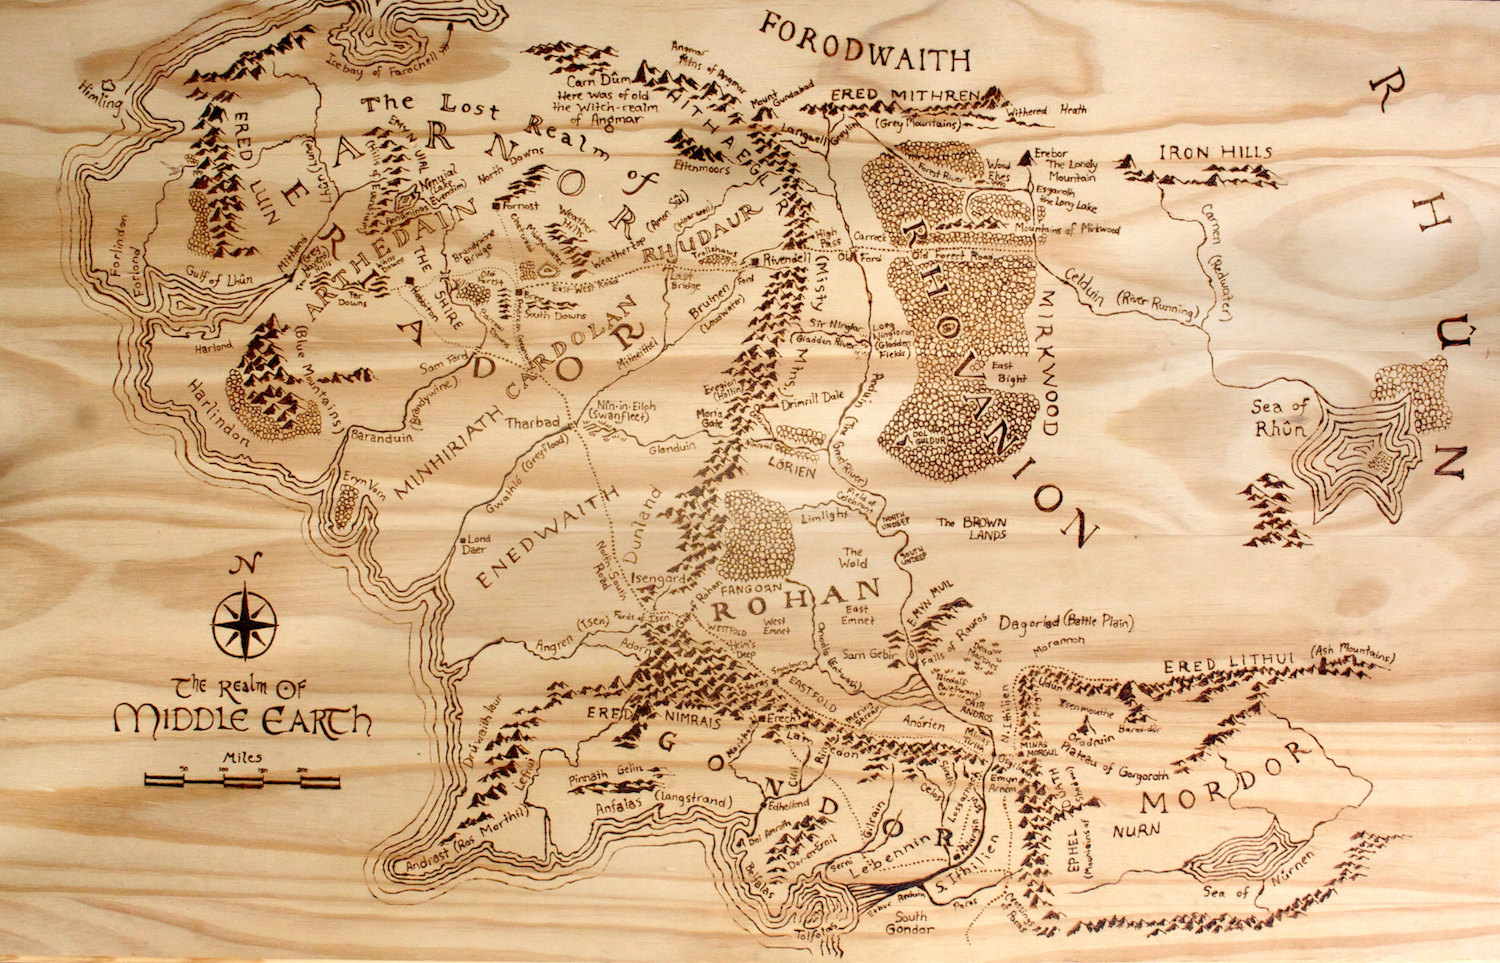 FORODWAITH
Icebay of Forochell
Himling
Angmar
Mtns of Angmar
Carn Dûm
Here was of old
the Witch-realm
of Angmar
The Lost Realm of
ARNOR
Mount
Gundabad
ERED MITHREN
(Grey Mountains)
Withered Heath
HITHAEGLIR
Ettenmoors
Langwell
Greylin
ERED LUIN
(Blue Mountains)
ERIADOR
EMYN UIAL
Nenuial
Lake
Evendim)
Annúminas
North Downs
Fornost
Weather
Hills
Weathertop (Amon Sûl)
(Hoarwell)
RHUDAUR
Trollshaws
Last
Bridge
Rivendell
Ford
Bruinen
(Loudwater)
High
Pass
(Misty
Mtns.)
Wood
Elves
Forest River
Erebor
The Lonely
Mountain
Esgaroth
the Long Lake
Mountains of Mirkwood
IRON HILLS
Carnen (Redwater)
Celduin (River Running)
Carrock
Old Ford
Old Forest Road
RHOVANION
MIRKWOOD
East
Bight
DOL
GULDUR
RHÛN
Sea of
Rhûn
Forlindon
Forlond
Gulf of Lhûn
Mithlond
Harlond
Harlindon
ARTHEDAIN
Far
Downs
THE
SHIRE
Brandywine
Bridge
Old
Forest
Bree
East-West Road
South Downs
CARDOLAN
Mitheithel
Sarn Ford
Baranduin (Brandywine)
MINHIRIATH
Eryn Vorn
Tharbad
Nîn-in-Eilph
(Swanfleet)
Glanduin
Gwathló (Greyflood)
Lond
Daer
ENEDWAITH
Dunland
North South
Road
Eregion
(Hollin)
Moria
Gate
Sir Ninglor
(Gladden River)
Loeg
Ningloron
(Gladden
Fields)
Drimrill Dale
LÓRIEN
Anduin (The Great River)
Field of
Celebrant
Limlight
NORTH
UNDEEP
SOUTH
UNDEEP
The BROWN
LANDS
The
Wold
Isengard
FANGORN
Gap of Rohan
ROHAN
Fords of Isen
Angren (Isen)
Adorn
WESTFOLD
West
Emnet
East
Emnet
Helm's
Deep
Onodló (Entwash)
Snowbourn
Edoras
EASTFOLD
Sarn Gebir
EMYN MUIL
Falls of Rauros
Dead
Marshes
Nindalf
(Wetwang)
CAIR
ANDROS
Dagorlad (Battle Plain)
Morannon
Udûn
ERED LITHUI (Ash Mountains)
Isenmouthe
Barad-dûr
Orodruin
Plateau of Gorgoroth
MORDOR
NURN
Sea of Núrnen
N. Ithilien
MINAS
MORGUL
EPHEL DÚATH
Osgiliath
Emyn
Arnen
Minas
Tirith
Anórien
ERED NIMRAIS
Erech
Morthond
Lamedon
Ringló
Ciril
GONDOR
Drúwaith Iaur
Lefnui
Pinnath Gelin
Anfalas (Langstrand)
Andrast (Ras Morthil)
Edhellond
Dol Amroth
Dor-en-Ernil
Belfalas
Gilrain
Serni
Celos
Lossarnach
Lebennin
Pelargir
S. Ithilien
Ethir Anduin
Tolfalas
Poros
Crossings
of Poros
South
Gondor
N
The Realm OF
MIDDLE EARTH
Miles
50 100 150 200